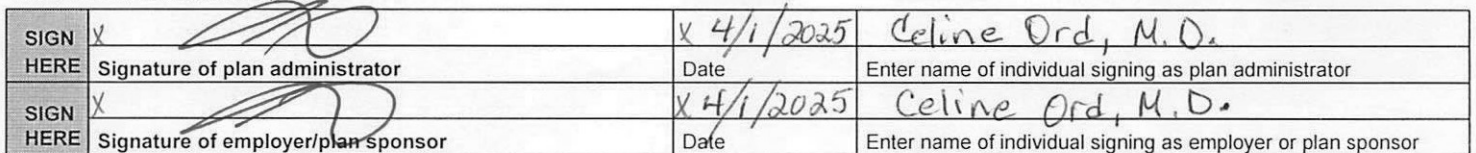 SIGN X X 4/1/2025 Celine Ord, M.D.
HERE Signature of plan administrator Date Enter name of individual signing as plan administrator
SIGN X X 4/1/2025 Celine Ord, M.D.
HERE Signature of employer/plan sponsor Date Enter name of individual signing as employer or plan sponsor